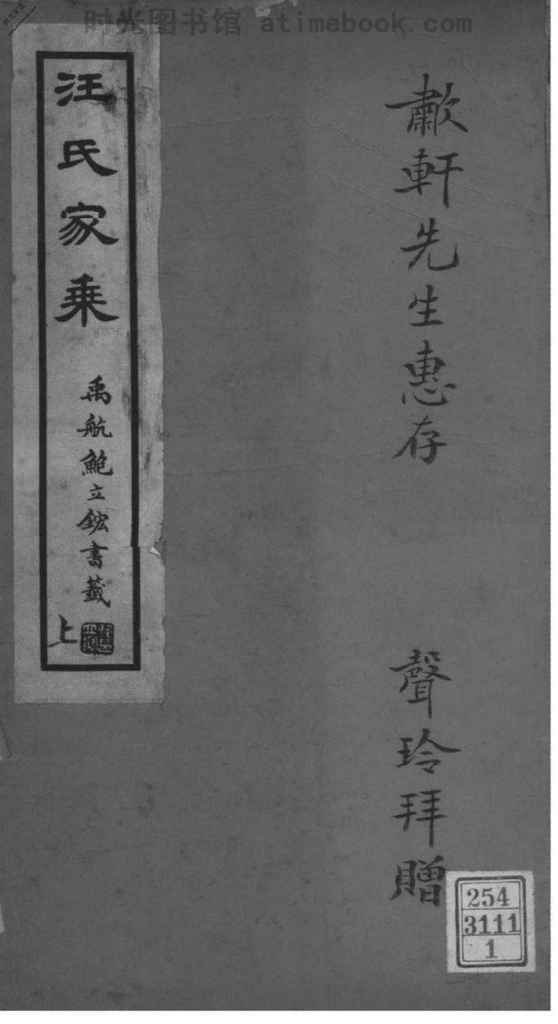 时光图书馆 atimebook.com
歗軒先生惠存
聲玲拜贈
汪氏家乘
禹航鮑立鋐書籤
上
254
3111
1